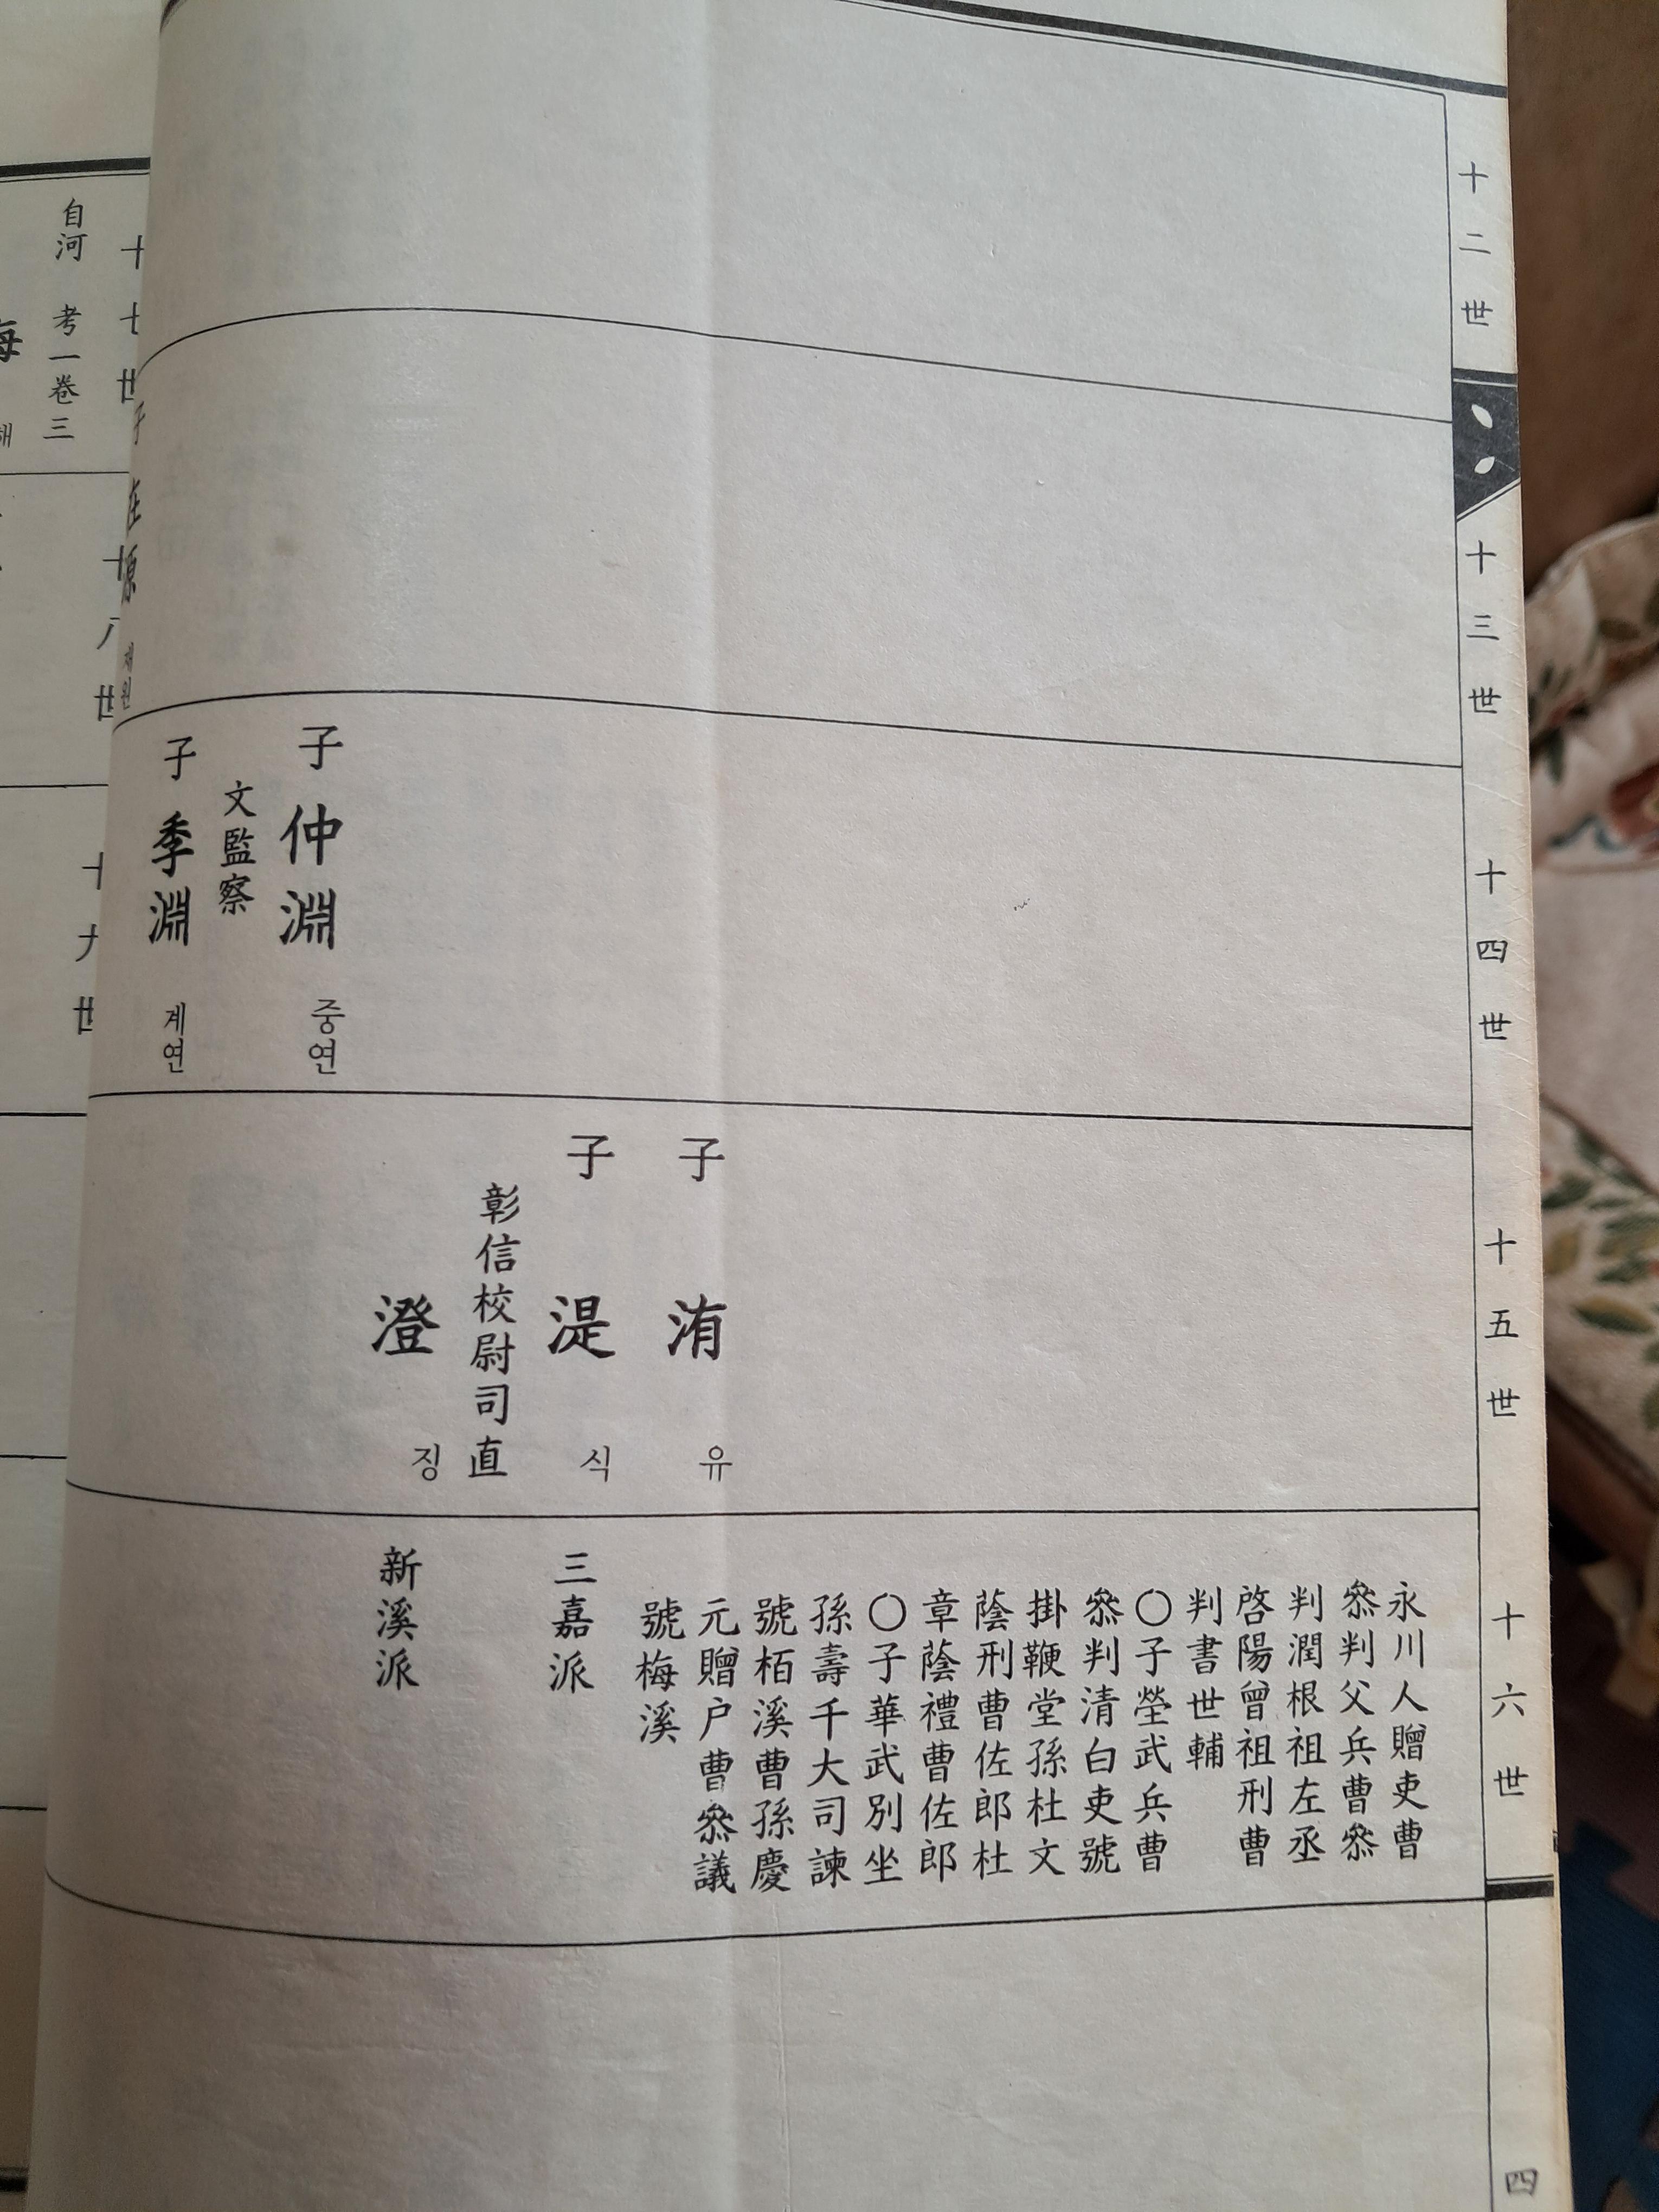 十二世
十三世
十四世
十五世
十六世
四
子 仲淵 중연
文監察
子 季淵 계연
子 洧 유
子 湜 식
彰信校尉司直
澄 징
永川人贈吏曹
叅判父兵曹叅
判潤根祖左丞
啓陽曾祖刑曹
判書世輔
〇子瑩武兵曹
叅判清白吏號
掛鞭堂孫杜文
蔭刑曹佐郎杜
章蔭禮曹佐郎
〇子華武別坐
孫壽千大司諫
號栢溪曹孫慶
元贈户曹叅議
號梅溪
三嘉派
新溪派
子 在源 재원
十七世
十八世
十九世
自河 考一卷三